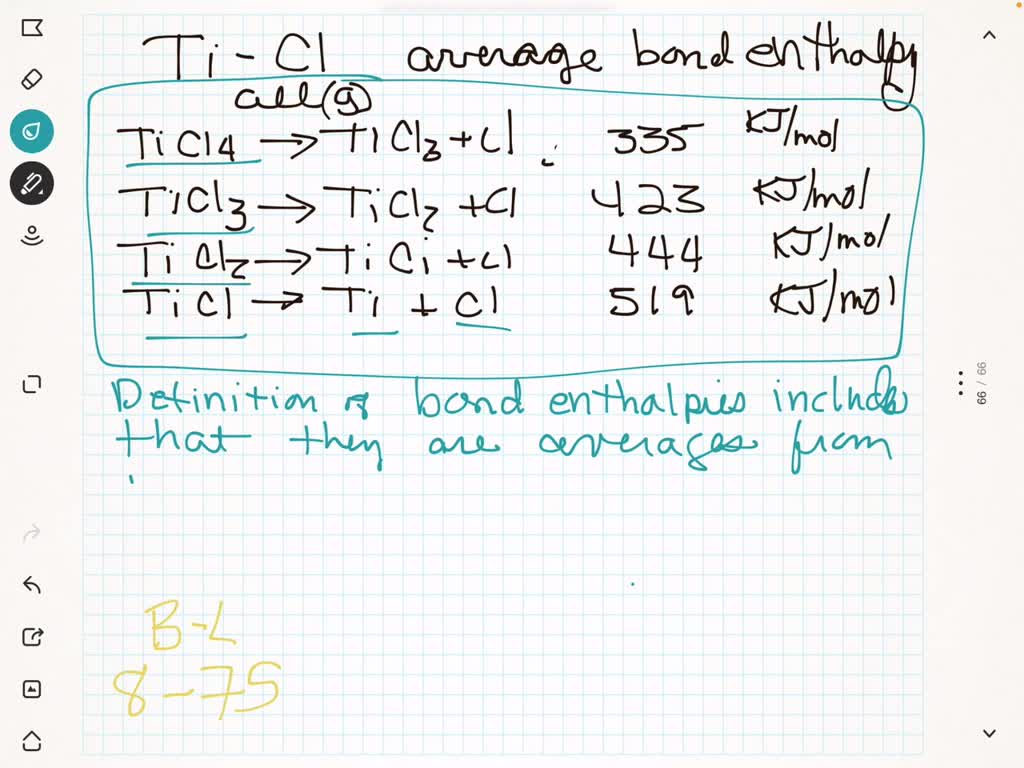 Ti - Cl average bond enthalpy
all (g)
TiCl4 → TiCl3 + Cl 335 KJ/mol
TiCl3 → TiCl2 + Cl 423 KJ/mol
TiCl2 → TiCl + Cl 444 KJ/mol
TiCl → Ti + Cl 519 KJ/mol
Definition of bond enthalpies include
that they are averages from
B-L
8-75
66 / 66